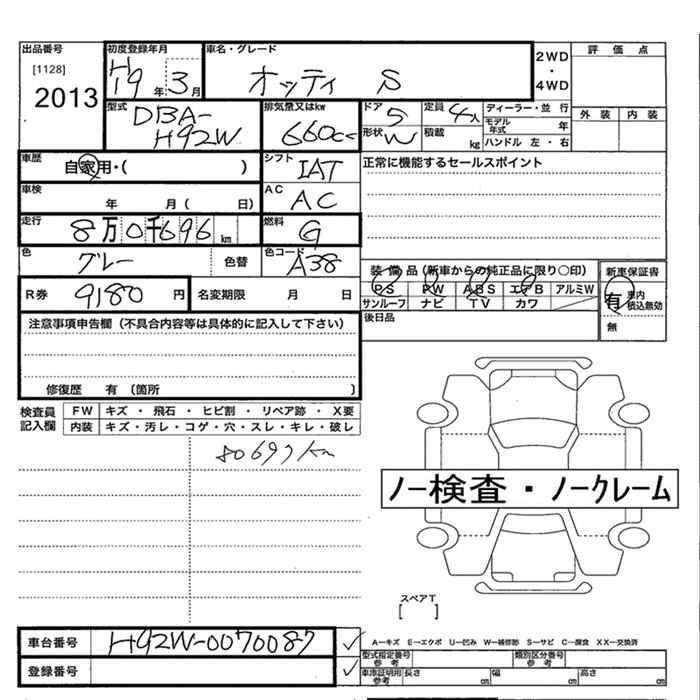 出品番号 初度登録年月 車名・グレード 2WD ・ 4WD 評価点
[1128] 2013 H19年 3月 オッティ S
外装 内装
型式 DBA-H92W 排気量又はkw 660cc ドア 5 定員 4人 ディーラー・並行
形状 W 積載 kg モデル年式 年
ハンドル 左・右
車歴 自家用・( ) シフト IAT 正常に機能するセールスポイント
車検 年 月 ( 日) AC AC
走行 8万0千696 km 燃料 G
色 グレー 色替 色コード A38
装備品(新車からの純正品に限り○印) 新車保証書
PS PW ABS エアB アルミW 有 車内積込無効
サンルーフ ナビ TV カワ 無
R券 9180 円 名変期限 月 日
後日品
注意事項申告欄(不具合内容等は具体的に記入して下さい)
修復歴 有 〔箇所 〕
検査員記入欄 FW キズ・飛石・ヒビ割・リペア跡・X要
内装 キズ・汚レ・コゲ・穴・スレ・キレ・破レ
80697km
ノー検査・ノークレーム
スペアT
[ ]
車台番号 H92W-0070087
A−キズ E−エクボ U−凹み W−補修跡 S−サビ C−腐食 XX−交換済
型式指定番号 参考 類別区分番号 参考
登録番号 車庫証明用 参考 長さ cm 幅 cm 高さ cm